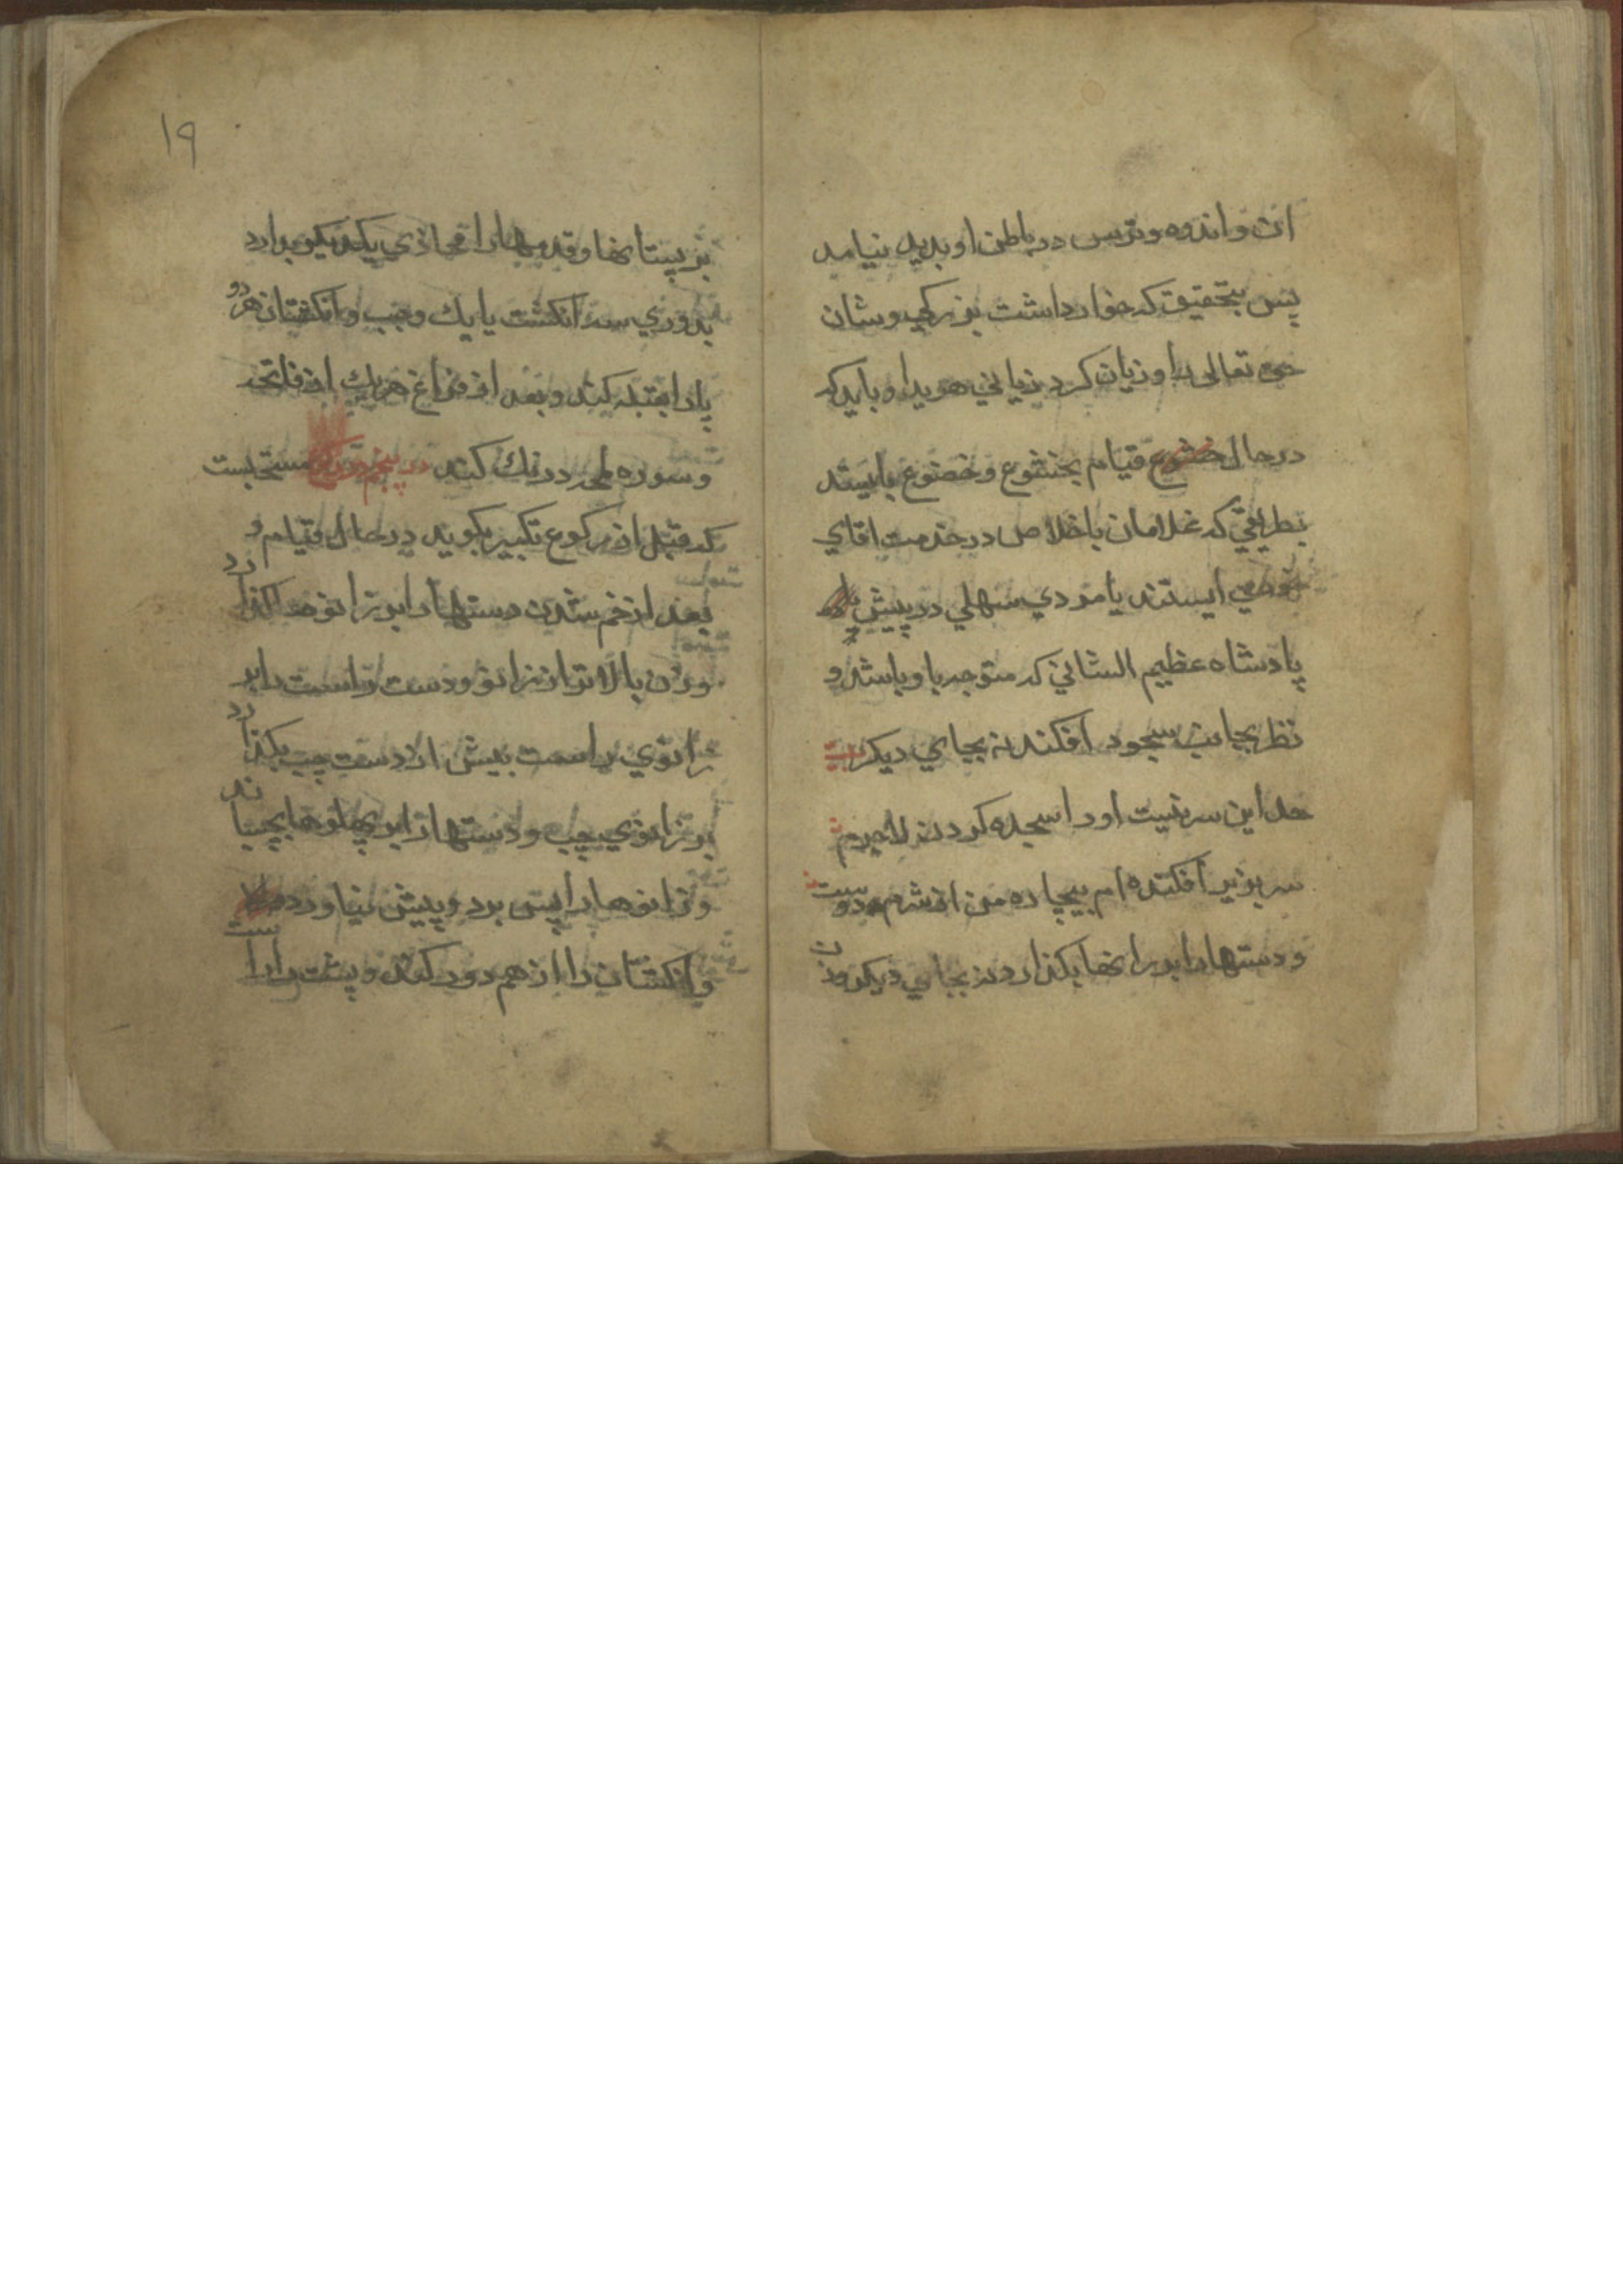 ان و اندوه و ترس در باطن او بدید نیامد
پس بتحقیق که خوار داشت بزرکی و شان
حق تعالی را و زیان کرد زیانی هویدا و باید که
در حال قیام بخشوع و خضوع بایستد
بطریقی که غلامان با خلاص در خدمت اقای
خود می ایستند یا مردی سهلی در پیش
پادشاه عظیم الشانی که متوجه باو باشد و
نظر بجانب سجود افکند نه بجای دیکر بیت
حد این سر نیست او را سجده کردن لاجرم
سر بزیر افکنده ام بیچاره من از شرم دوست
و دستها را بر رانها بکذارد نه بجای دیکر و زن
۱۹
بر پستانها و قدمها را محاذی یکدیکر بدارد
بدوری سه انکشت یا یك وجب و انکشتان هر دو
پا را بقبله کند و بعد از فراغ هر یك از فاتحه
و سوره درنك کند در پنجم مستحبست
که قبل از رکوع تکبیر بکوید در حال قیام و
بعد از خم شدن دستها را بر زانوها کذارد
و زن بالاتر از زانو و دست راست را بر
زانوی راست پیش از دست چپ بکذارد
بر زانوی چپ و دستها را بر پهلوها بچسباند
و زانوها را پس برد و پیش نیاورد
و انکشتان را از هم دور کند و پشت را راست